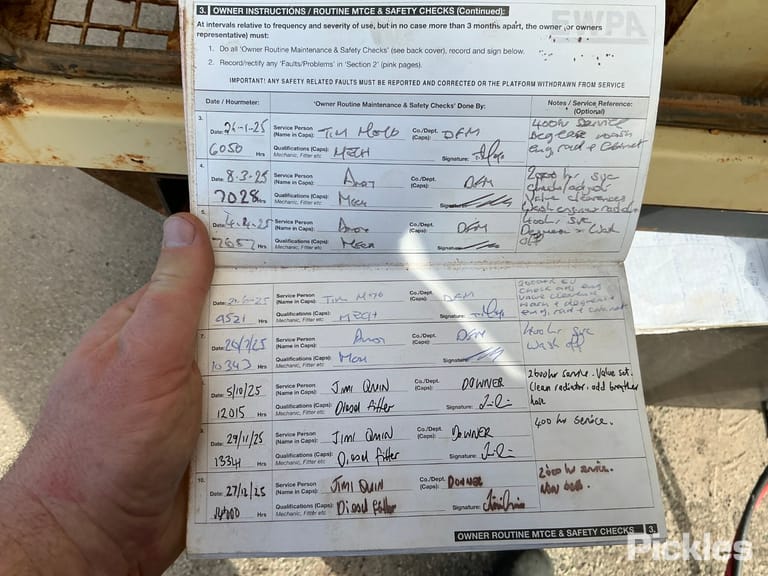 3. OWNER INSTRUCTIONS / ROUTINE MTCE & SAFETY CHECKS (Continued):
EWPA
At intervals relative to frequency and severity of use, but in no case more than 3 months apart, the owner (or owners
representative) must:
1. Do all 'Owner Routine Maintenance & Safety Checks' (see back cover), record and sign below.
2. Record/rectify any 'Faults/Problems' in 'Section 2' (pink pages).
IMPORTANT! ANY SAFETY RELATED FAULTS MUST BE REPORTED AND CORRECTED OR THE PLATFORM WITHDRAWN FROM SERVICE
Date / Hourmeter: 'Owner Routine Maintenance & Safety Checks' Done By: Notes / Service Reference:
(Optional)
3. Date: 26-1-25 Service Person (Name in Caps): TIM Co./Dept. (Caps): DFM 400hr Service
Degrease wash
6050 Hrs Qualifications (Caps): MECH Signature: eng, rad & cabinet
Mechanic, Fitter etc
4. Date: 8.3.25 Service Person (Name in Caps): Co./Dept. (Caps): DFM 2000 hr svc
check/adjust
7028 Hrs Qualifications (Caps): MECH Signature: Valve clearances
Mechanic, Fitter etc Wash engine/rad
5. Date: Service Person (Name in Caps): Co./Dept. (Caps): DFM 400hr svc
Degrease & Wash
Hrs Qualifications (Caps): MECH Signature: off
Mechanic, Fitter etc
Date: Service Person (Name in Caps): TIM Co./Dept. (Caps): DFM
check adj eng
valve clearance
9521 Hrs Qualifications (Caps): MECH Signature: wash & degrease
Mechanic, Fitter etc eng, rad & cabinet
7. Date: Service Person (Name in Caps): Co./Dept. (Caps): DFM 400 hr svc
10343 Hrs Qualifications (Caps): Mech Signature: Wash off
Mechanic, Fitter etc
Date: 5/10/25 Service Person (Name in Caps): JIMI QUIN Co./Dept. (Caps): DOWNER 2000hr service. Valve set.
Clean radiator. add breather
12015 Hrs Qualifications (Caps): Diesel fitter Signature: hose
Mechanic, Fitter etc
Date: 29/11/25 Service Person (Name in Caps): JIMI QUIN Co./Dept. (Caps): DOWNER 400 hr service.
13341 Hrs Qualifications (Caps): Diesel fitter Signature:
Mechanic, Fitter etc
10. Date: 27/12/25 Service Person (Name in Caps): JIMI QUIN Co./Dept. (Caps): DOWNER 2000 hr service.
Hrs Qualifications (Caps): Diesel fitter Signature:
Mechanic, Fitter etc
OWNER ROUTINE MTCE & SAFETY CHECKS 3.
Pickles